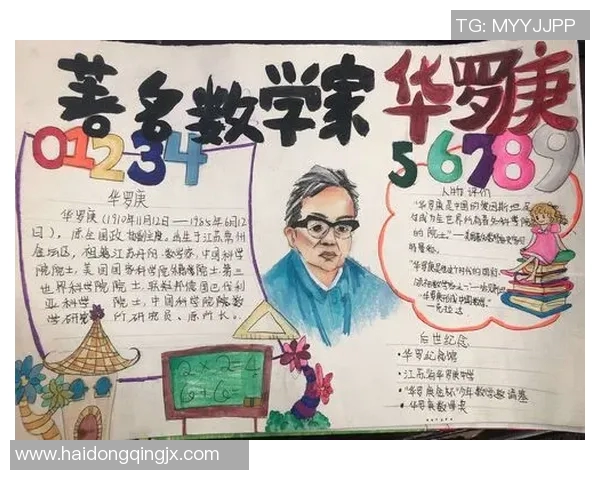 TG: MYYJJPP
著名数学家 华罗庚
01234
56789
华罗庚
华罗庚(1910年11月12日——1985年6月12
日),
出生于江苏常州
金坛区,祖籍江苏丹阳.数学家,中国科学
院院士,美国国家科学院外籍院士,第三
世界科学院院士,联邦德国巴伐利
亚科学院院士,中国科学院数
学研究所研究员、原所长。
人物评价
"华罗庚是中国的爱因斯坦,足
够成为全世界所有著名科学院
的院士。"
2×2=4
6+6=
后世纪念
·华罗庚纪念馆
·江苏省华罗庚中学
·"华罗庚金杯"少年数学邀请赛
·华罗庚数学奖
www.haidongqingjx.com